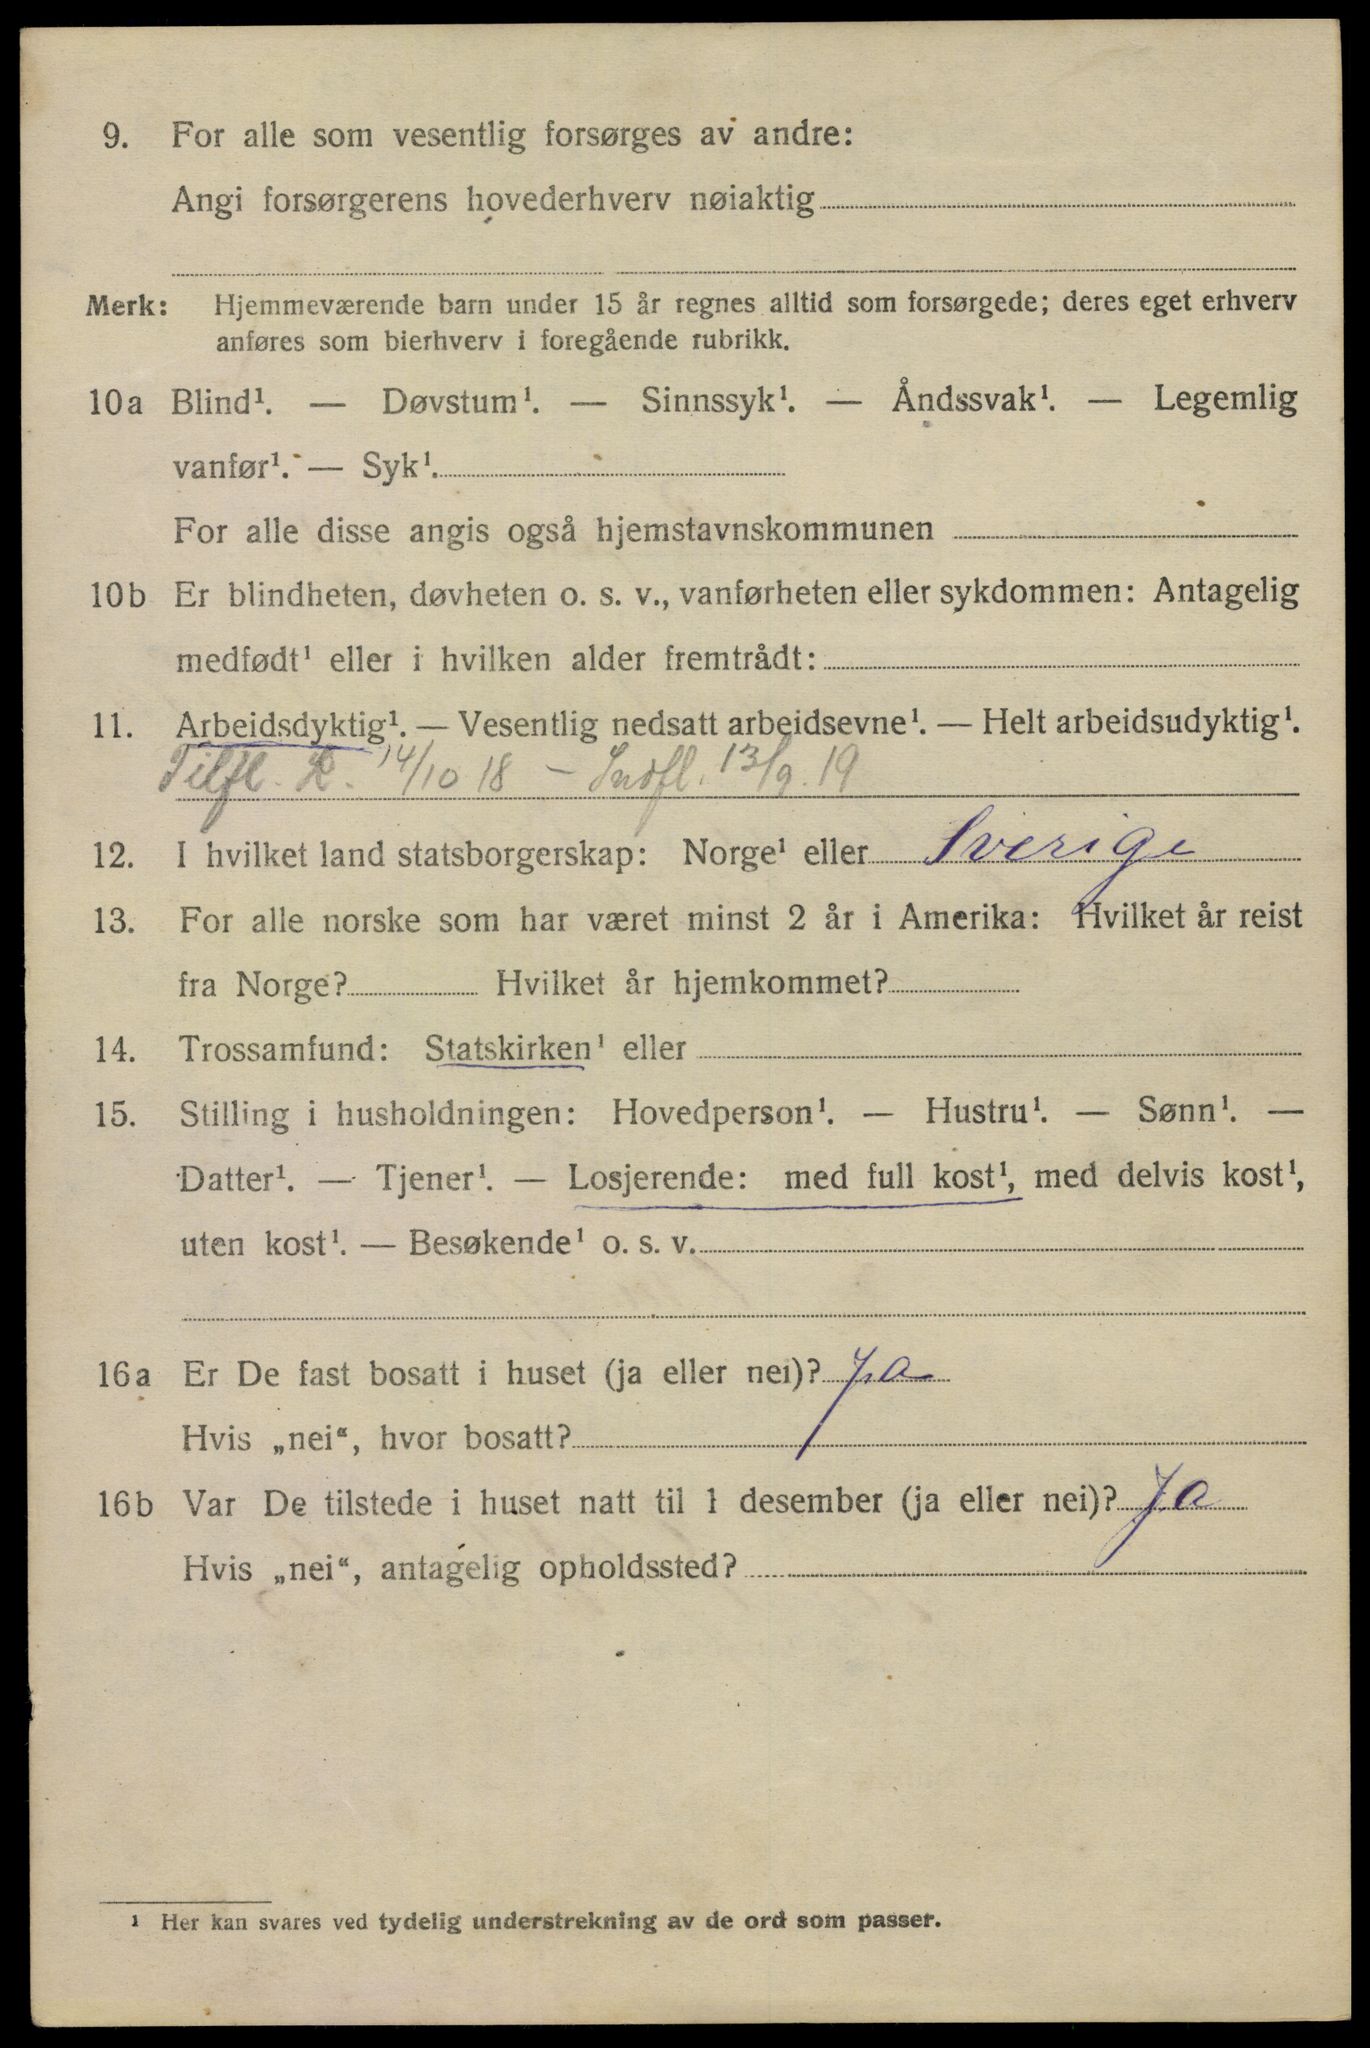 9. For alle som vesentlig forsørges av andre:
Angi forsørgerens hovederhverv nøiaktig
Merk: Hjemmeværende barn under 15 år regnes alltid som forsørgede; deres eget erhverv
anføres som bierhverv i foregående rubrikk.
10a Blind¹. — Døvstum¹. — Sinnssyk¹. — Åndssvak¹. — Legemlig
vanfør¹. — Syk¹.
For alle disse angis også hjemstavnskommunen
10b Er blindheten, døvheten o. s. v., vanførheten eller sykdommen: Antagelig
medfødt¹ eller i hvilken alder fremtrådt:
11. Arbeidsdyktig¹. — Vesentlig nedsatt arbeidsevne¹. — Helt arbeidsudyktig¹.
Tilfl. L. 14/10 18 – Indfl. 13/9. 19
12. I hvilket land statsborgerskap: Norge¹ eller Sverige
13. For alle norske som har været minst 2 år i Amerika: Hvilket år reist
fra Norge? Hvilket år hjemkommet?
14. Trossamfund: Statskirken¹ eller
15. Stilling i husholdningen: Hovedperson¹. — Hustru¹. — Sønn¹. —
Datter¹. — Tjener¹. — Losjerende: med full kost¹, med delvis kost¹,
uten kost¹. — Besøkende¹ o. s. v.
16a Er De fast bosatt i huset (ja eller nei)? Ja
Hvis „nei“, hvor bosatt?
16b Var De tilstede i huset natt til 1 desember (ja eller nei)? Ja
Hvis „nei“, antagelig opholdssted?
¹ Her kan svares ved tydelig understrekning av de ord som passer.